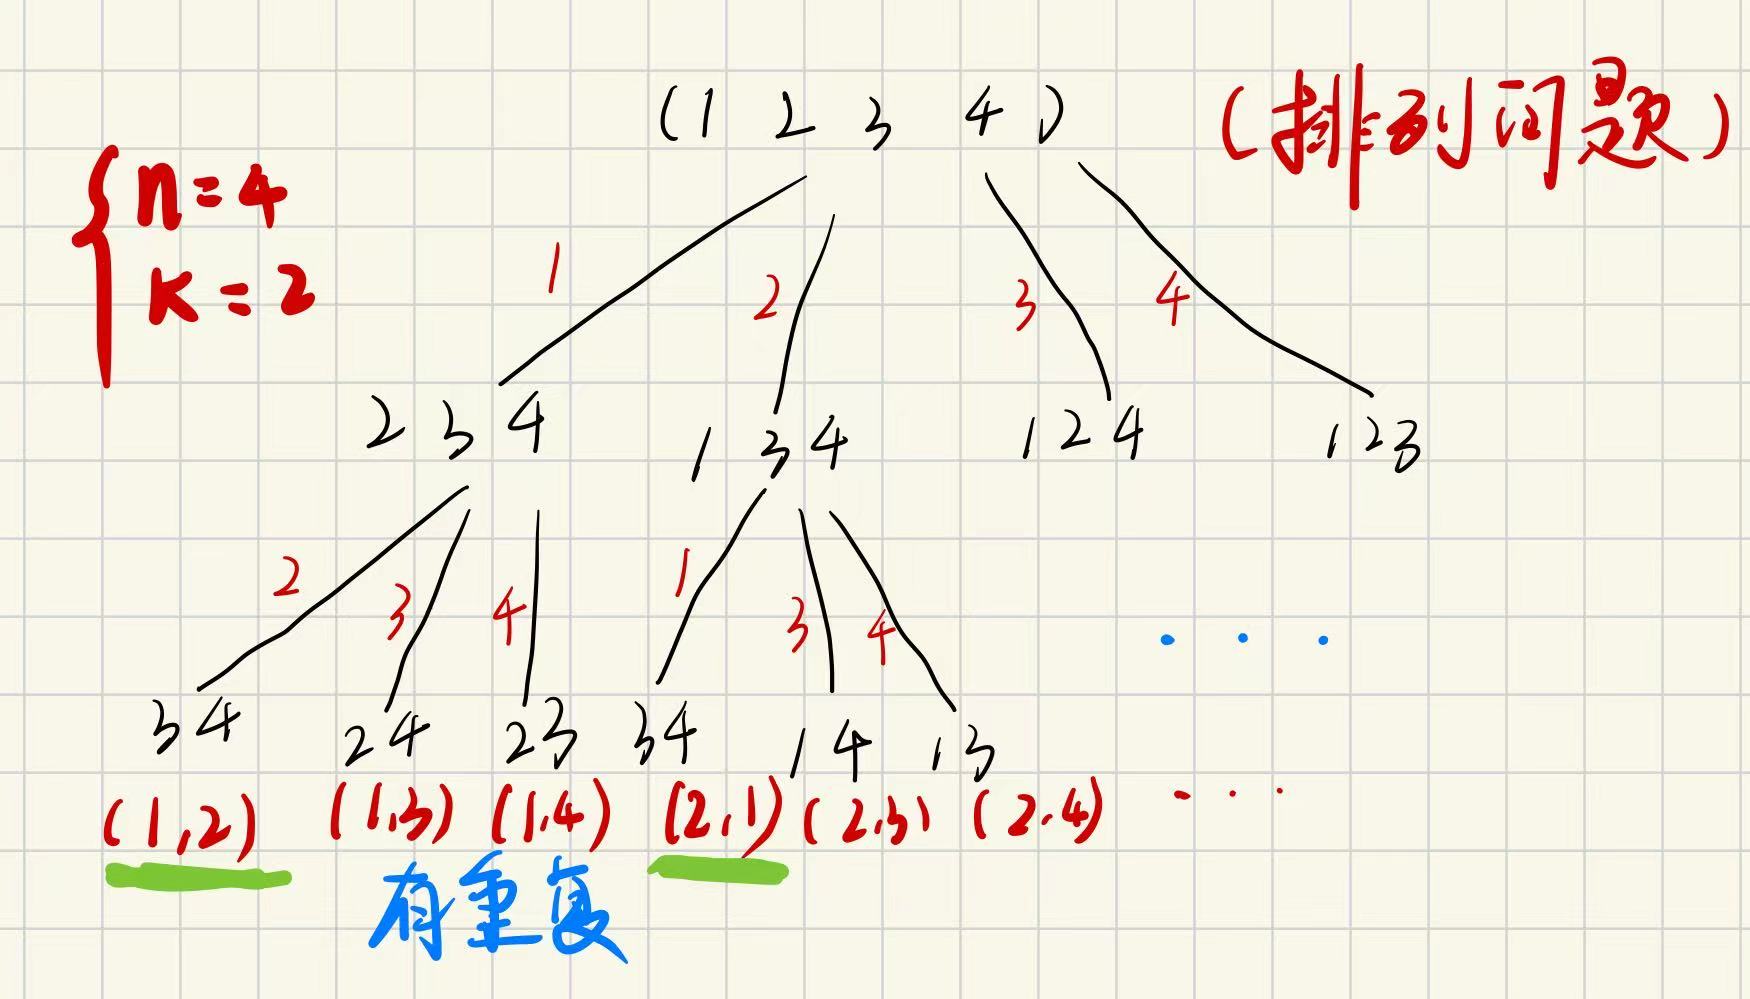 (1 2 3 4)
(排列问题)
n=4
k=2
1 2 3 4
2 3 4 1 3 4 1 2 4 1 2 3
2 3 4 1 3 4
. . .
3 4 2 4 2 3 3 4 1 4 1 3
(1,2) (1,3) (1,4) (2,1) (2,3) (2,4) ...
有重复